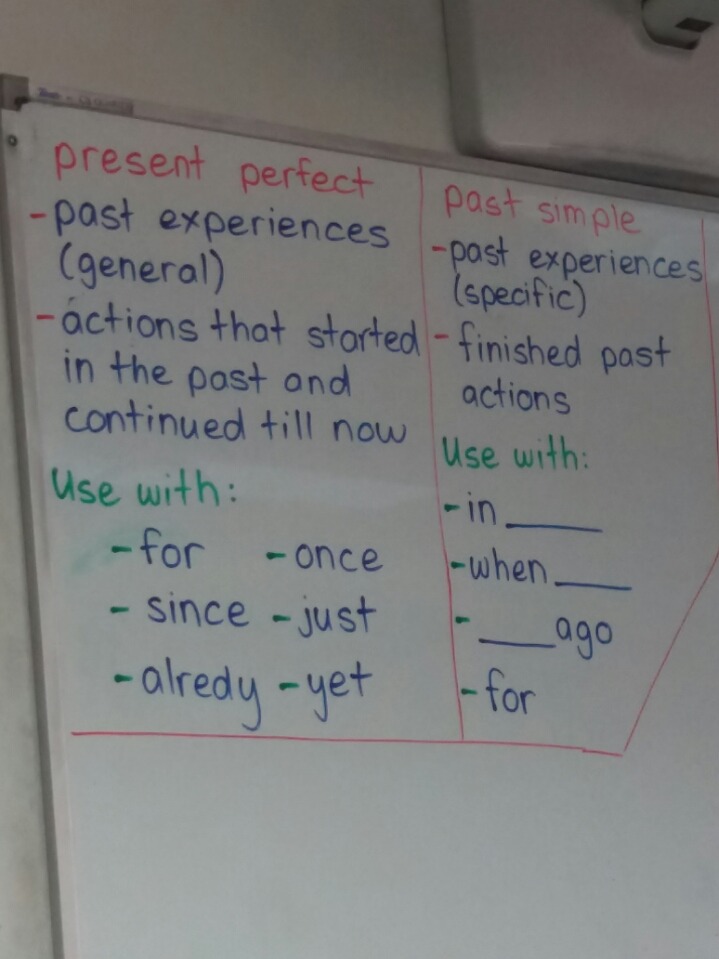 present perfect
-past experiences
(general)
-actions that started
in the past and
continued till now
Use with:
-for -once
-since -just
-alredy -yet
past simple
-past experiences
(specific)
-finished past
actions
Use with:
-in ______
-when _____
-_____ago
-for